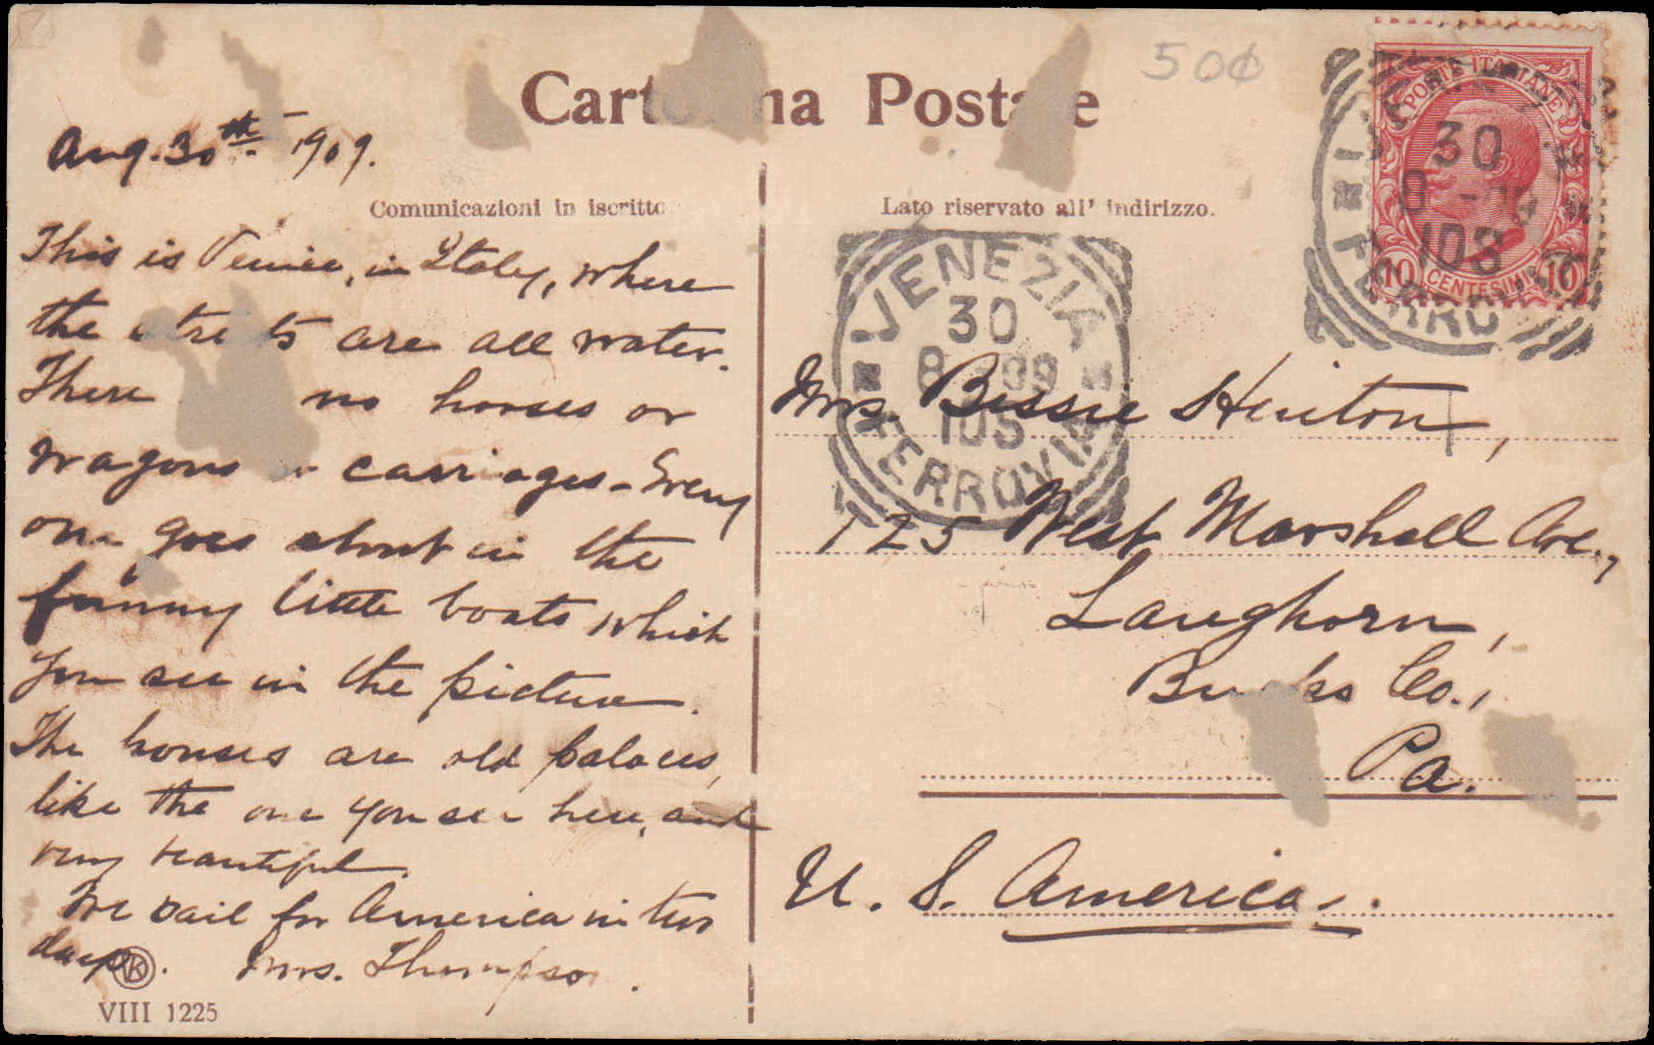 50¢
Cart na Posta e
Aug. 30th 1909.
Comunicazioni in iscritto
This is Venice, in Italy, where
the streets are all water.
There no horses or
wagons or carriages - Every
one goes about in the
funny little boats which
you see in the picture.
The houses are old palaces,
like the one you see here, and
very beautiful.
We sail for America in two
days.
Mrs. Thompson.
K
VIII 1225
Lato riservato all' indirizzo.
POSTE ITALIANE
10 CENTESIMI 10
VENEZIA
30
8 - 09
10S
FERROVIA
VENEZIA
30
8 - 09
10S
FERROVIA
Mrs. Bessie Heaton,
125 West Marshall Ave.,
Langhorn,
Bucks Co.,
Pa.
U. S. America.